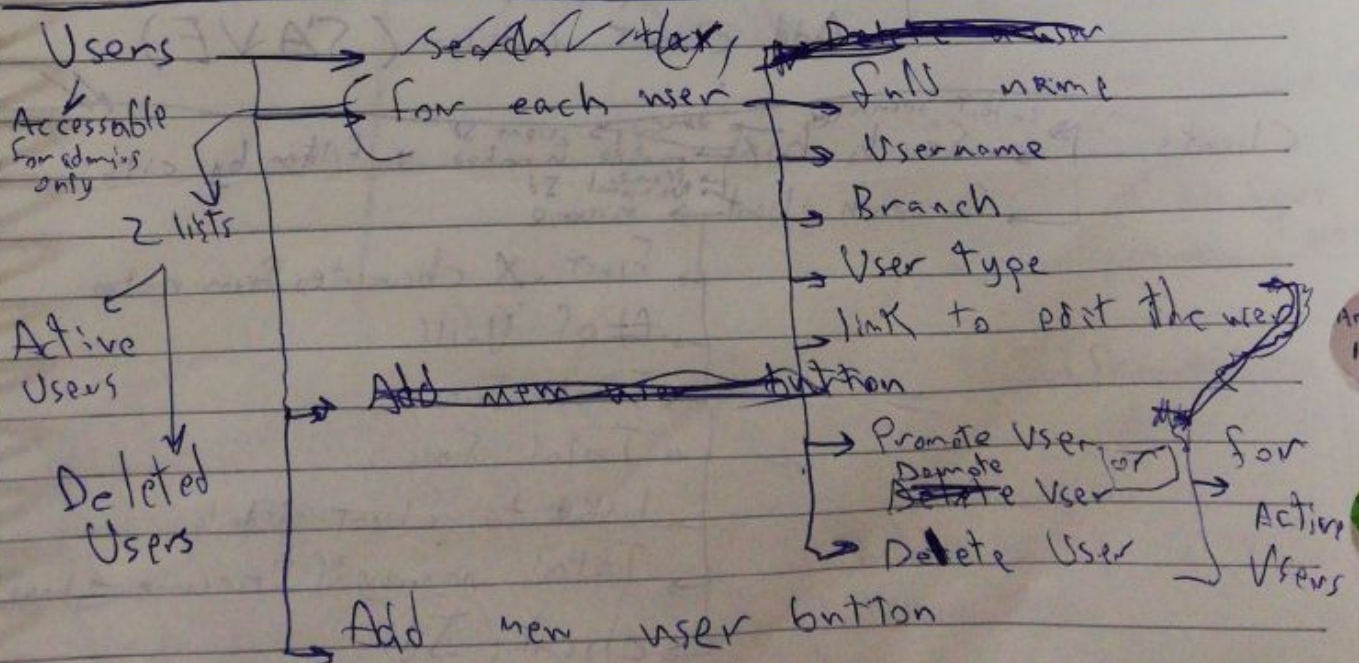 Users
Accessable
for admins
only
for each user
2 lists
Active
Users
Deleted
Users
full name
Username
Branch
User type
link to edit the user
Add new user button
Promote User
or
Demote User
Delete User
for
Active
Users
Add new user button